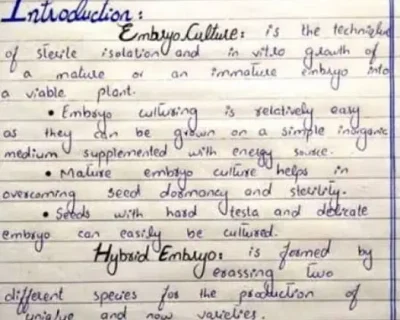 Introduction:
Embryo Culture: is the technique
of sterile isolation and in vitro growth of
a mature or an immature embryo into
a viable plant.
• Embryo culturing is relatively easy
as they can be grown on a simple inorganic
medium supplemented with energy source.
• Mature embryo culture helps in
overcoming seed dormancy and sterility.
• Seeds with hard testa and delicate
embryo can easily be cultured.
Hybrid Embryo: is formed by
crossing two
different species for the production of
unique and new varieties.